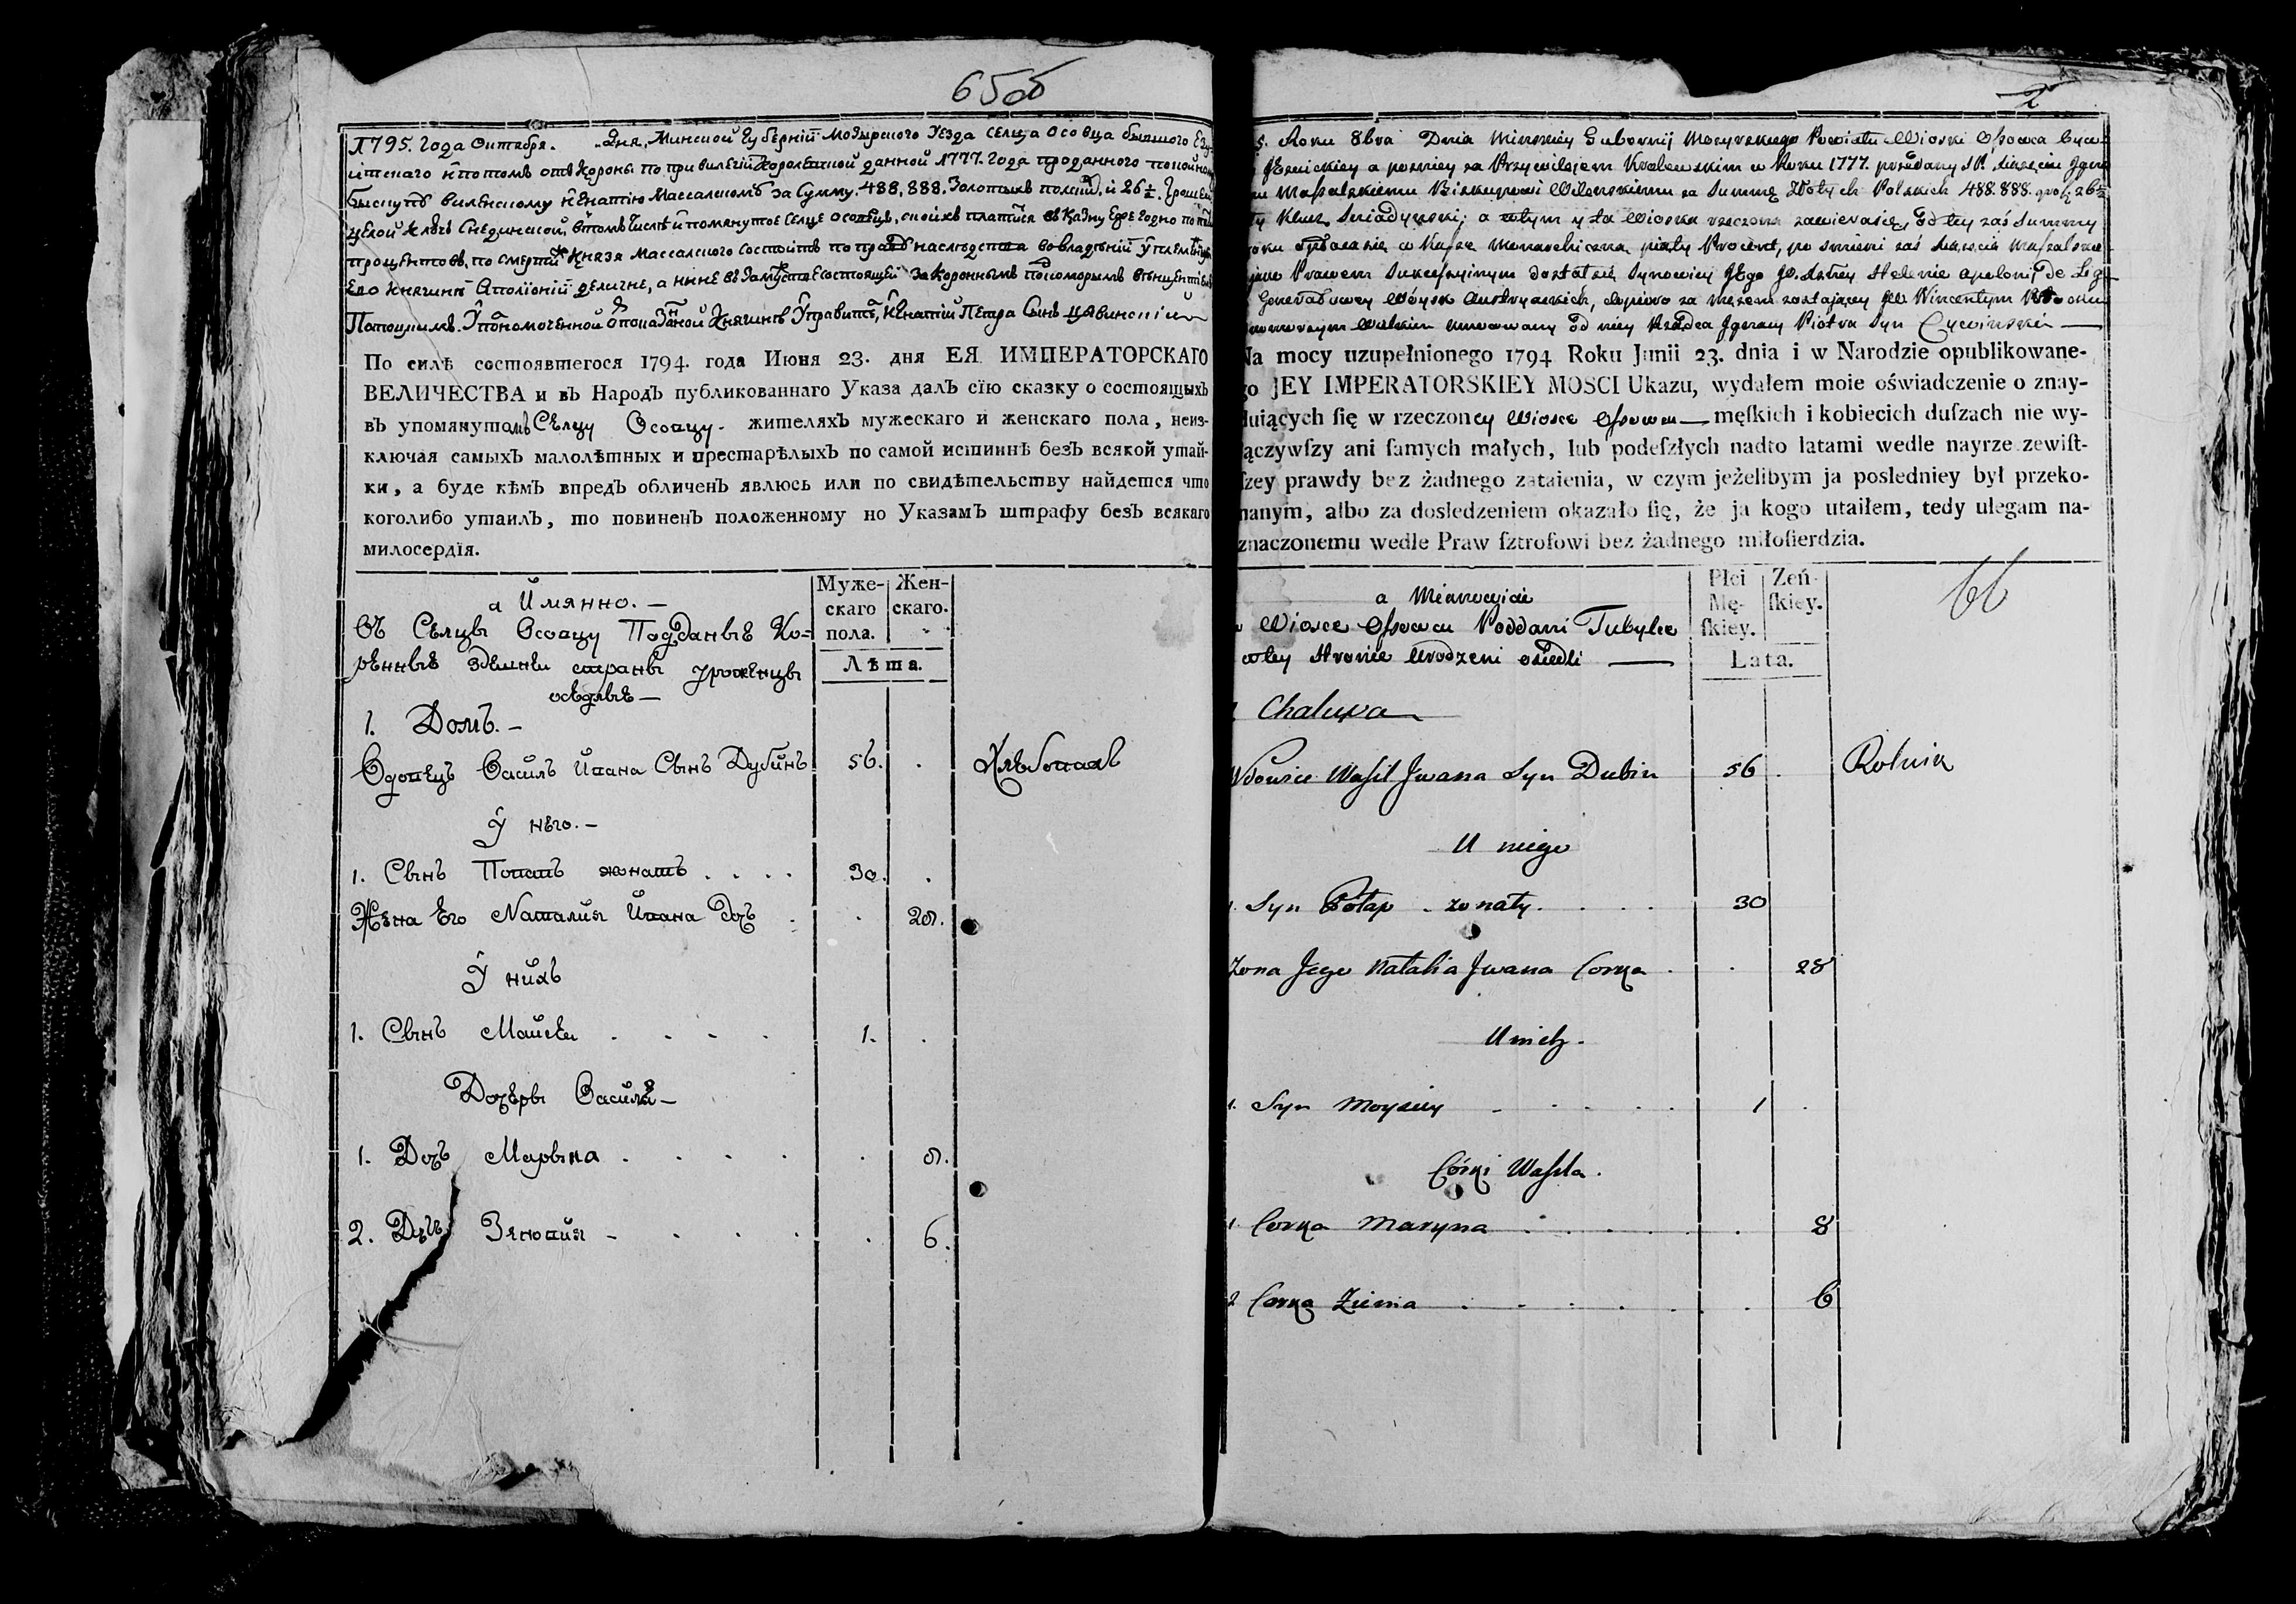 65об
1795. года Октября. Дня, Минской Губерніи Мозырского Уезда Селца Осовца бывшого Езу-
итскаго и потомъ отъ Короны по привилегіи Королевской данной 1777. года проданного покойному
Бискупу виленскому Игнатію Массалскомъ за Сумму. 488,888. Золотыхъ и 26½. Грошей
Ключъ в томъ числѣ и помянутое Селце Осовецъ, въ Казну
процентовъ, по смерти Князя Массалского Состоитъ по праву наследства во владѣніи
Его Княгинѣ а нине въ Замустве состоящей за Короннымъ
Потоцкимъ. Княгинѣ Игнатій Петра Сынъ Цывинскій
По силѣ состоявшегося 1794. года Июня 23. дня ЕЯ ИМПЕРАТОРСКАГО
ВЕЛИЧЕСТВА и въ Народъ публикованнаго Указа далъ сїю сказку о состоящыхъ
въ упомянутомъ Селцу Осовцу. жителяхъ мужескаго и женскаго пола, неиз-
ключая самыхъ малолѣтных и престарѣлыхъ по самой истиннѣ безъ всякой утай-
ки, а буде кѣмъ впредъ обличенъ явлюсь или по свидѣтельству найдется что
коголибо утаилъ, то повиненъ положенному по Указамъ штрафу безъ всякаго
милосердїя.
Муже-
скаго
пола.
Жен-
скаго.
Лѣта.
а Имянно. —
Въ Селцы Осовцу Подданные Ко-
ренные здешнеи страны уроженцы
оседлые —
1. Домъ. —
Вдовецъ Василь Ивана Сынъ Дубинъ 56. . Хлебопахъ
У него. —
1. Сынъ Потапъ жонатъ . . . . 30. .
Жена Его Наталия Ивана Дочь . . 28.
У нихъ
1. Сынъ Майсеи . . . . 1. .
Дочеры Василя —
1. Дочь Марына . . . . . 8.
2. Дочь Зеновия - . . . . 6.
2
5. Roku 8bra Dnia Minskiey Gubernij Mozyrskiego Powiatu Wioski Ossowca
a pozniey za Przywilejem Krolewskim w Roku 1777. przedany
Massalskiemu Biskupowi Wilenskiemu za Summę Złotych Polskich 488.888. 26½
Klucz a w tym y ta Wioska rzeczona zawierasię, od tey zaś Summy
piąty Procent, po smierci zaś Xiązęcia
Prawem Sukcessyinym dostałsię Synowicy Jego Helenie Apolonij de
Woysk Austryackich, za mężem zostającey JW Wincentym
Wielkim od niey Rządca Jgnacy Piotra Syn Cywinski —
Na mocy uzupełnionego 1794 Roku Junii 23. dnia i w Narodzie opublikowane-
go JEY IMPERATORSKIEY MOSCI Ukazu, wydałem moie oświadczenie o znay-
duiących ſię w rzeczoney Wiosce Ossowcu — męſkich i kobiecich duſzach nie wy-
łączywſzy ani ſamych małych, lub podeſzłych nadto latami wedle nayrzezewiſt-
ſzey prawdy bez żadnego zataienia, w czym jeżelibym ja posledniey był przeko-
nanym, albo za dosledzeniem okazało ſię, że ja kogo utaiłem, tedy ulegam na-
znaczonemu wedle Praw ſztrofowi bez żadnego miłoſierdzia.
Płci
Mę-
ſkiey.
Zeń-
ſkiey.
Lata.
66
a Mianowicie
w Wiosce Ossowcu Poddani Tubylce
w tey Stronie Urodzeni osiedli —
1 Chalupa
Wdowiec Wasil Jwana Syn Dubin 56 . Rolnik
U niego
1. Syn Potap . zonaty . . . . 30
Zona Jego Natalia Jwana Corka . . 28
U nich .
1. Syn Moysiey . . . . . 1 .
Córki Wasila .
1. Corka Maryna . . . . . 8
2 Corka Zienia . . . . . . 6